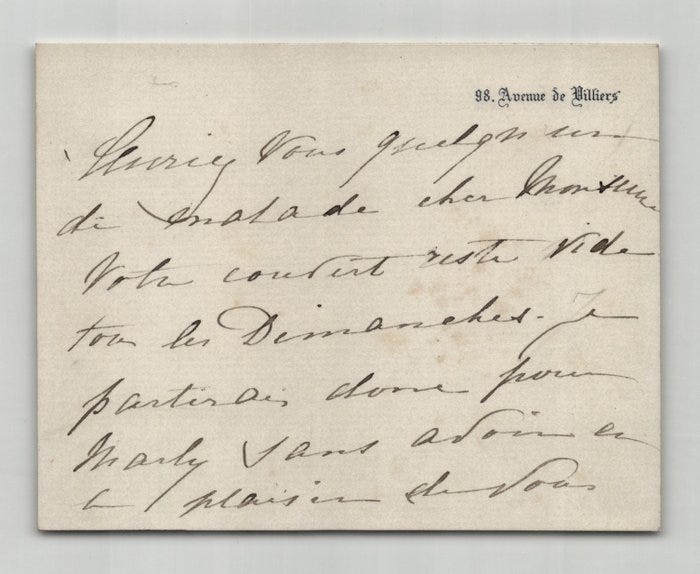 98. Avenue de Villiers
Auriez vous quelqu'un
de malade cher Monsieur
Votre couvert reste vide
tous les Dimanches. Je
partirais donc pour
Marly sans avoir eu
le plaisir de vous